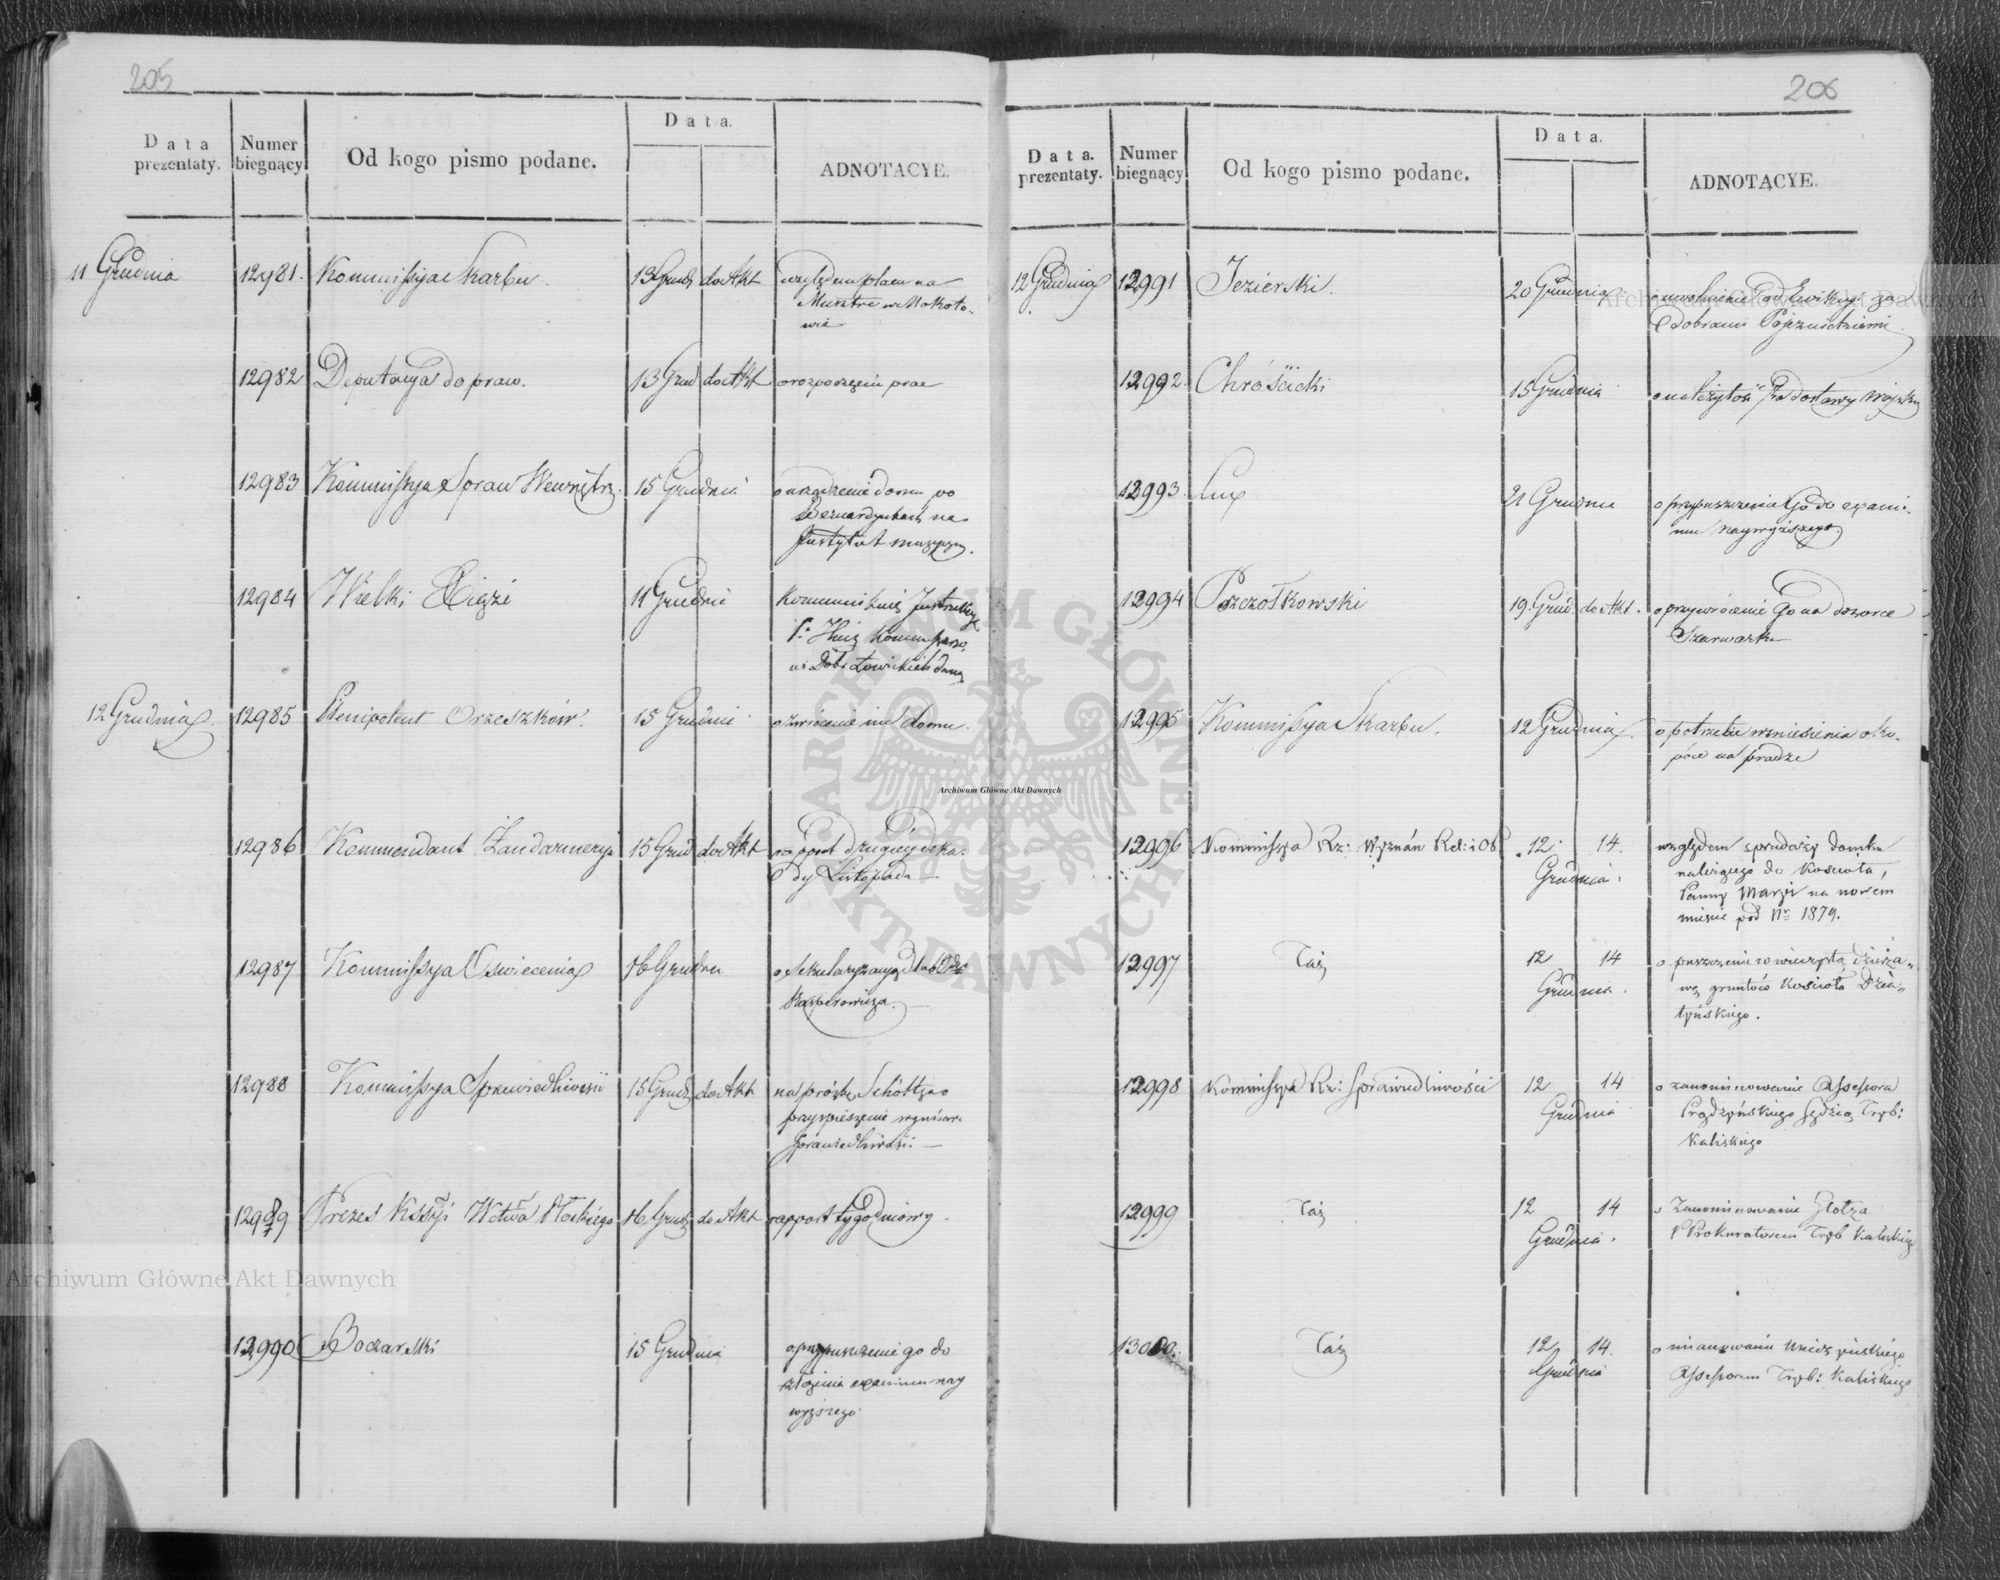 205
Data prezentaty.
Numer biegnący
Od kogo pismo podane.
Data.
ADNOTACYE.
11 Grudnia 12981. Kommissya Skarbu. 13 Grud do Akt względem placu na
Musztrę w Mokoto-
wie
12982 Deputacya do praw. 13 Grud do Akt o rozpoczęciu prac
12983 Kommissya Spraw Wewnętrz. 15 Grudnia o urządzenie domu po
Bernardynkach na
Instytut muzyczn.
12984 Wielki Xiąże 11 Grudnia
12 Grudnia 12985 Plenipotent Orzeszków. 15 Grudnia o zwrócenie im domu.
12986 Kommendant Żandarmeryi 15 Grud do Akt rapport drugiéy deka-
dy Listopada
12987 Kommissya Oswiecenia 16 Grudnia o Sekularyzacyą dla
Kasperowicza.
12988 Kommissya Sprawiedliwości 15 Grud do Akt na prośbę Scholtza o
przyspieszenie wymiaru
sprawiedliwości
12989 Prezes Kssyi Wdtwa Płockiego 16 Grud do Akt rapport tygodniowy.
12990 Boczarski 15 Grudnia o przypuszczenie go do
złożenia examinu nay
wyższego
206
Data. prezentaty.
Numer biegnący
Od kogo pismo podane.
Data.
ADNOTACYE.
12 Grudnia 12991 Jezierski. 20 Grudnia o uwolnienie od Ewikcyi za
dobrami
12992. Chróścicki 15 Grudnia o należytość za dostawy wojsku
12993. Lux 21 Grudnia o przypuszczenie Go do exami-
nu naywyższego
12994 Pszczołkowski 19. Grud do Akt. o przywrócenie Go na dozorcę
Szarwarku
12995 Kommissya Skarbu. 12 Grudnia. o potrzebie wzniesienia oko-
pów na pradze
12996 Kommissya Rz: Wyznán Rel: i Ob 12 14. Grudnia. względem sprzedaży domku
należącego do Koscioła,
Panny Maryi na nowem
mieście pod Nr 1879.
12997 Taż 12 14 Grudnia. o puszczenie w wieczystą dzierża-
wę gruntów Koscioła Dzia-
łyńskiego.
12998 Kommissya Rz: Sprawiedliwości 12 14 Grudnia o zanominowanie Assessora
Prądzyńskiego Sędzią Tryb:
Kaliskiego
12999 Taż 12 14 Grudnia. o Zanominowanie Głotza
P Prokuratorem Tryb Kaliskiego
13000. Taż 12 14. Grudnia o mianowaniu
Assessorem Tryb: Kaliskiego
ARCHIWUM GŁÓWNE AKT DAWNYCH
Archiwum Główne Akt Dawnych
Archiwum Główne Akt Dawnych
Archiwum Główne Akt Dawnych